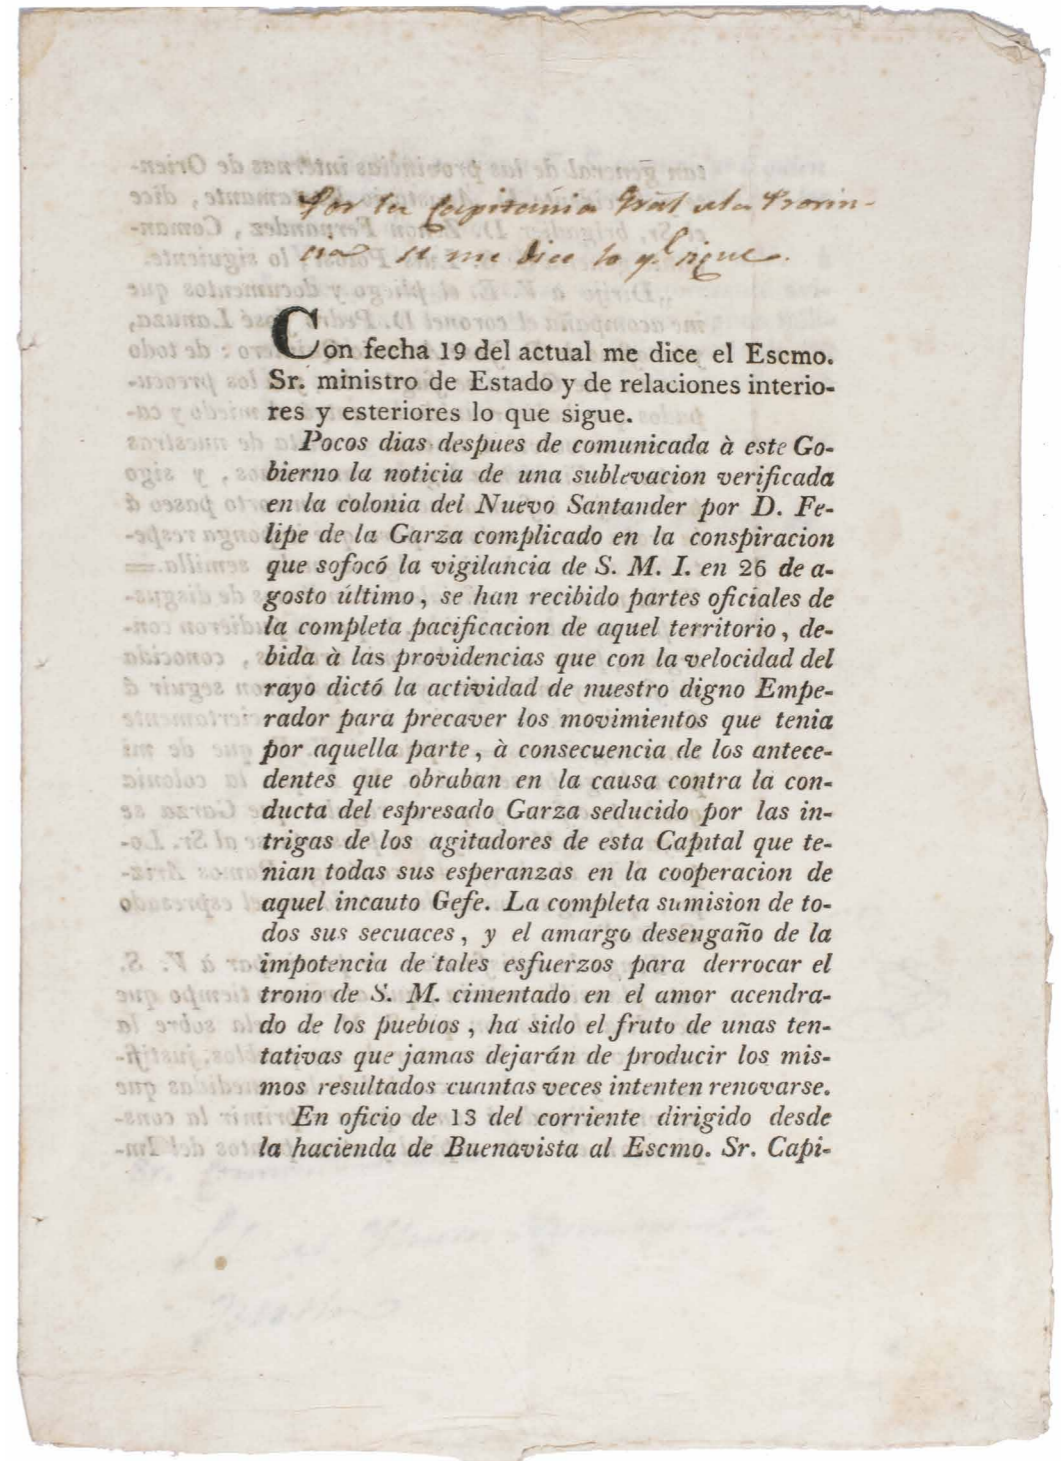 Por la Capitania Gral de la Provin-
cia se me dice lo q.e sigue.
Con fecha 19 del actual me dice el Escmo.
Sr. ministro de Estado y de relaciones interio-
res y esteriores lo que sigue.
Pocos dias despues de comunicada à este Go-
bierno la noticia de una sublevacion verificada
en la colonia del Nuevo Santander por D. Fe-
lipe de la Garza complicado en la conspiracion
que sofocó la vigilancia de S. M. I. en 26 de a-
gosto último, se han recibido partes oficiales de
la completa pacificacion de aquel territorio, de-
bida à las providencias que con la velocidad del
rayo dictó la actividad de nuestro digno Empe-
rador para precaver los movimientos que tenia
por aquella parte, à consecuencia de los antece-
dentes que obraban en la causa contra la con-
ducta del espresado Garza seducido por las in-
trigas de los agitadores de esta Capital que te-
nian todas sus esperanzas en la cooperacion de
aquel incauto Gefe. La completa sumision de to-
dos sus secuaces, y el amargo desengaño de la
impotencia de tales esfuerzos para derrocar el
trono de S. M. cimentado en el amor acendra-
do de los pueblos, ha sido el fruto de unas ten-
tativas que jamas dejarán de producir los mis-
mos resultados cuantas veces intenten renovarse.
En oficio de 13 del corriente dirigido desde
la hacienda de Buenavista al Escmo. Sr. Capi-